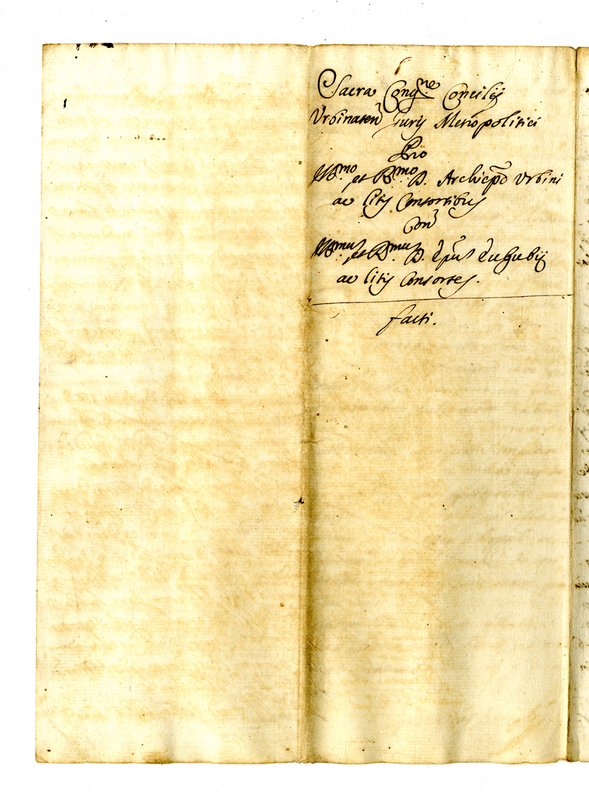 Sacra Cong.ne Concilij
Urbinaten Juris Metropolitici
Pro
Ill.mo et R.mo D. Archiepõ Urbini
ac litis Consortibus
Con
Ill.mus et R.mus D. Epus Eugubij
ac litis Consortes.
facti.